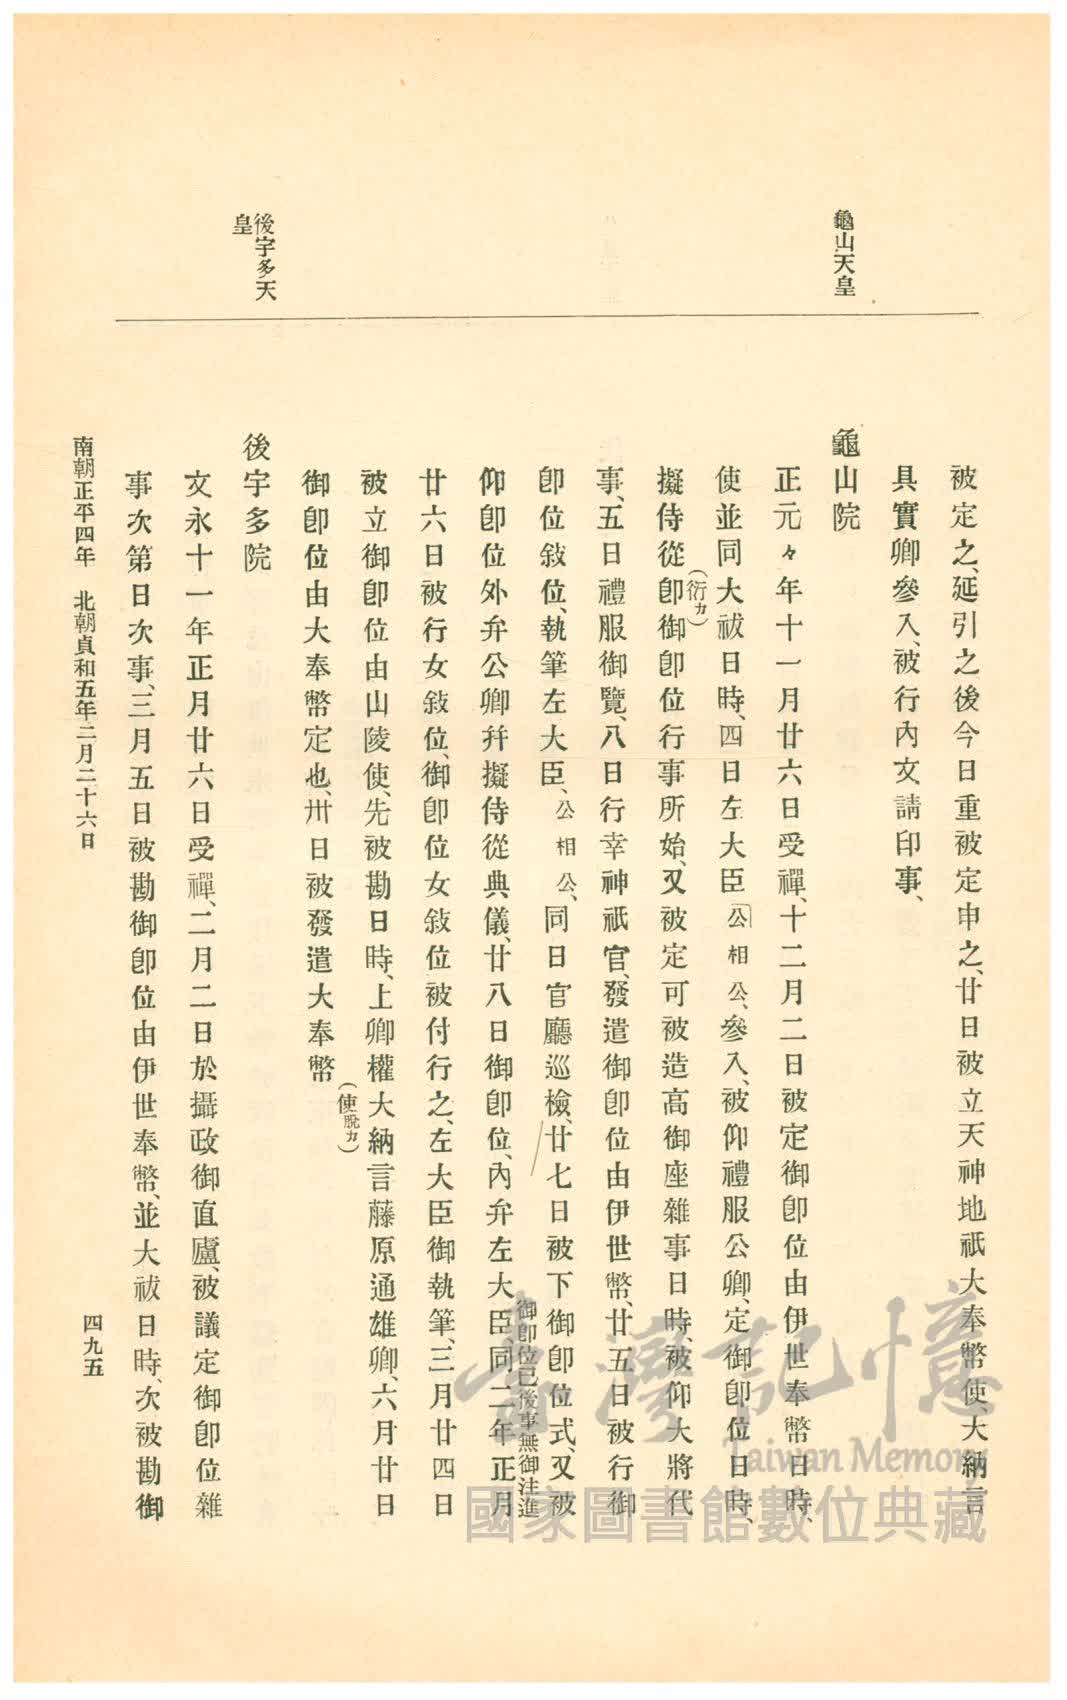 龜山天皇
後宇多天
皇
被定之、延引之後今日重被定申之、廿日被立天神地祇大奉幣使、大納言
具實卿參入、被行內文、請印事、
龜山院
正元々年十一月廿六日受禪、十二月二日被定御卽位由伊世奉幣日時、
使並同大祓日時、四日左大臣公相公、參入、被仰禮服公卿、定御卽位日時、
(衍カ)
擬侍從卽御卽位行事所始、又被定可被造高御座雜事日時、被仰大將代
事、五日禮服御覽、八日行幸神祇官、發遣御卽位由伊世幣、廿五日被行御
卽位敍位、執筆左大臣、公相公、同日官廳巡檢、廿七日被下御卽位式、又被
仰卽位外弁公卿幷擬侍從典儀、廿八日御卽位、內弁左大臣同二年正月
御卽位已後事無御注進
廿六日被行女敍位、御卽位女敍位被付行之、左大臣御執筆、三月廿四日
被立御卽位由山陵使、先被勘日時、上卿權大納言藤原通雄卿、六月廿日
(使脫カ)
御卽位由大奉幣定也、卅日被發遣大奉幣
後宇多院
文永十一年正月廿六日受禪、二月二日於攝政御直廬、被議定御卽位雜
事次第日次事、三月五日被勘御卽位由伊世奉幣、並大祓日時、次被勘御
南朝正平四年 北朝貞和五年三月二十六日
四九五
臺灣記憶
Taiwan Memory
國家圖書館數位典藏